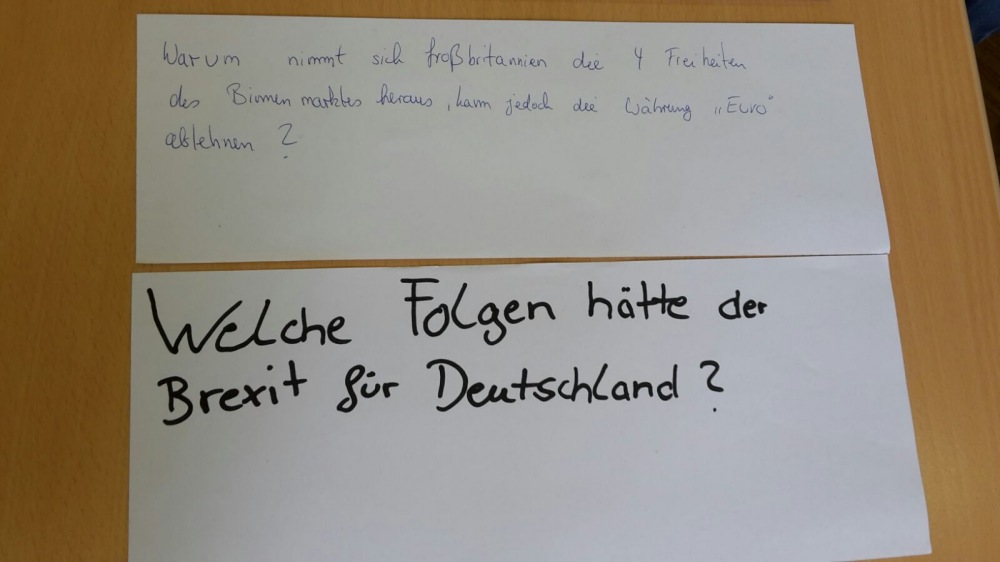 Warum nimmt sich Großbritannien die 4 Freiheiten
des Binnenmarktes heraus, kann jedoch die Währung „Euro"
ablehnen?
Welche Folgen hätte der
Brexit für Deutschland?